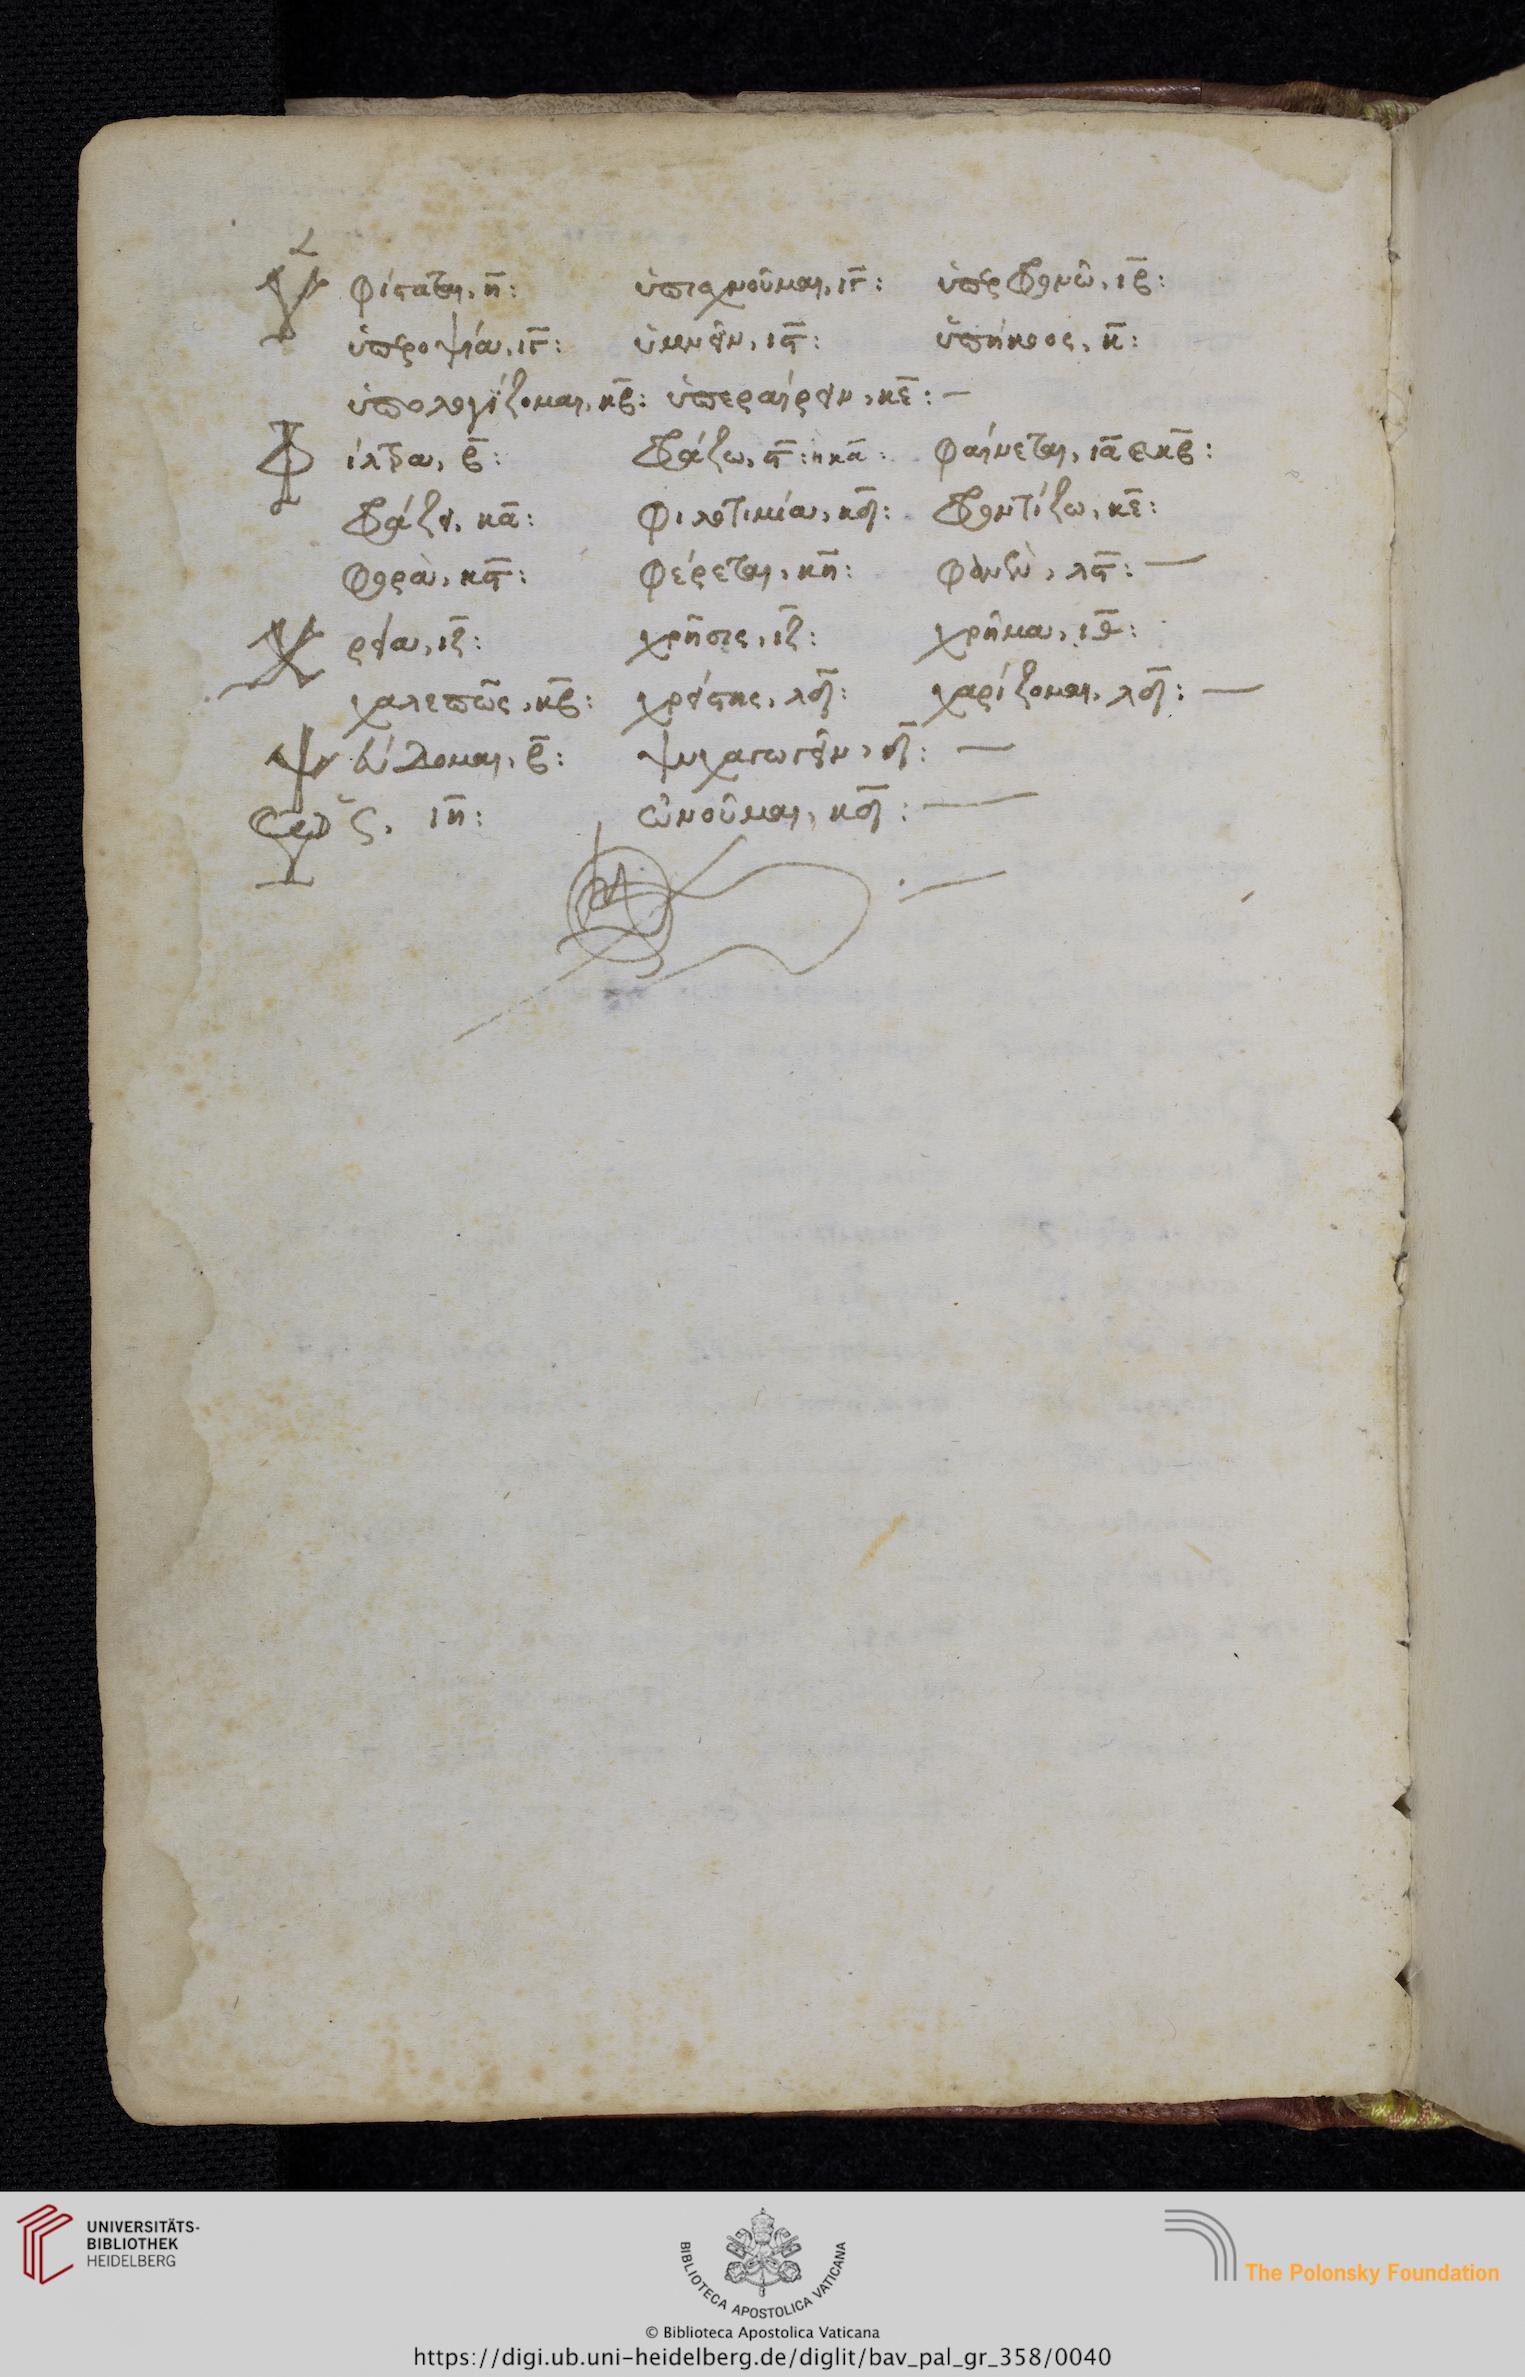 Ὑφίσταται, η̅: ὑπισχνοῦμαι, ιγ̅: ὑπερφρονῶ, ιβ̅:
ὑπεροψία, ιγ̅: ὑμνεῖν, ιϛ̅: ὑπήκοος, κ̅:
ὑπολογίζομαι, κβ̅: ὑπεραίρειν, κε̅: —
Φίλτρα, β̅: φράζω, ϛ̅: κα̅: φαίνεται, ια̅ κβ̅:
κα̅: φιλοτιμία, κδ̅: φροντίζω, κε̅:
φορὰ, κϛ̅: φέρεται, κη̅: λϛ̅: —
Χρεία, ιζ̅: χρῆσις, ιζ̅: χρῆμα, ιθ̅:
χαλεπῶς, κβ̅: χρήστης, λδ̅: χαρίζομαι, λδ̅: —
Ψεύδομαι, β̅: ψυχαγωγεῖν, δ̅: —
Ὡς, ιη̅: ὠνοῦμαι, κδ̅: —
UNIVERSITÄTS-
BIBLIOTHEK
HEIDELBERG
BIBLIOTECA APOSTOLICA VATICANA
The Polonsky Foundation
© Biblioteca Apostolica Vaticana
https://digi.ub.uni-heidelberg.de/diglit/bav_pal_gr_358/0040